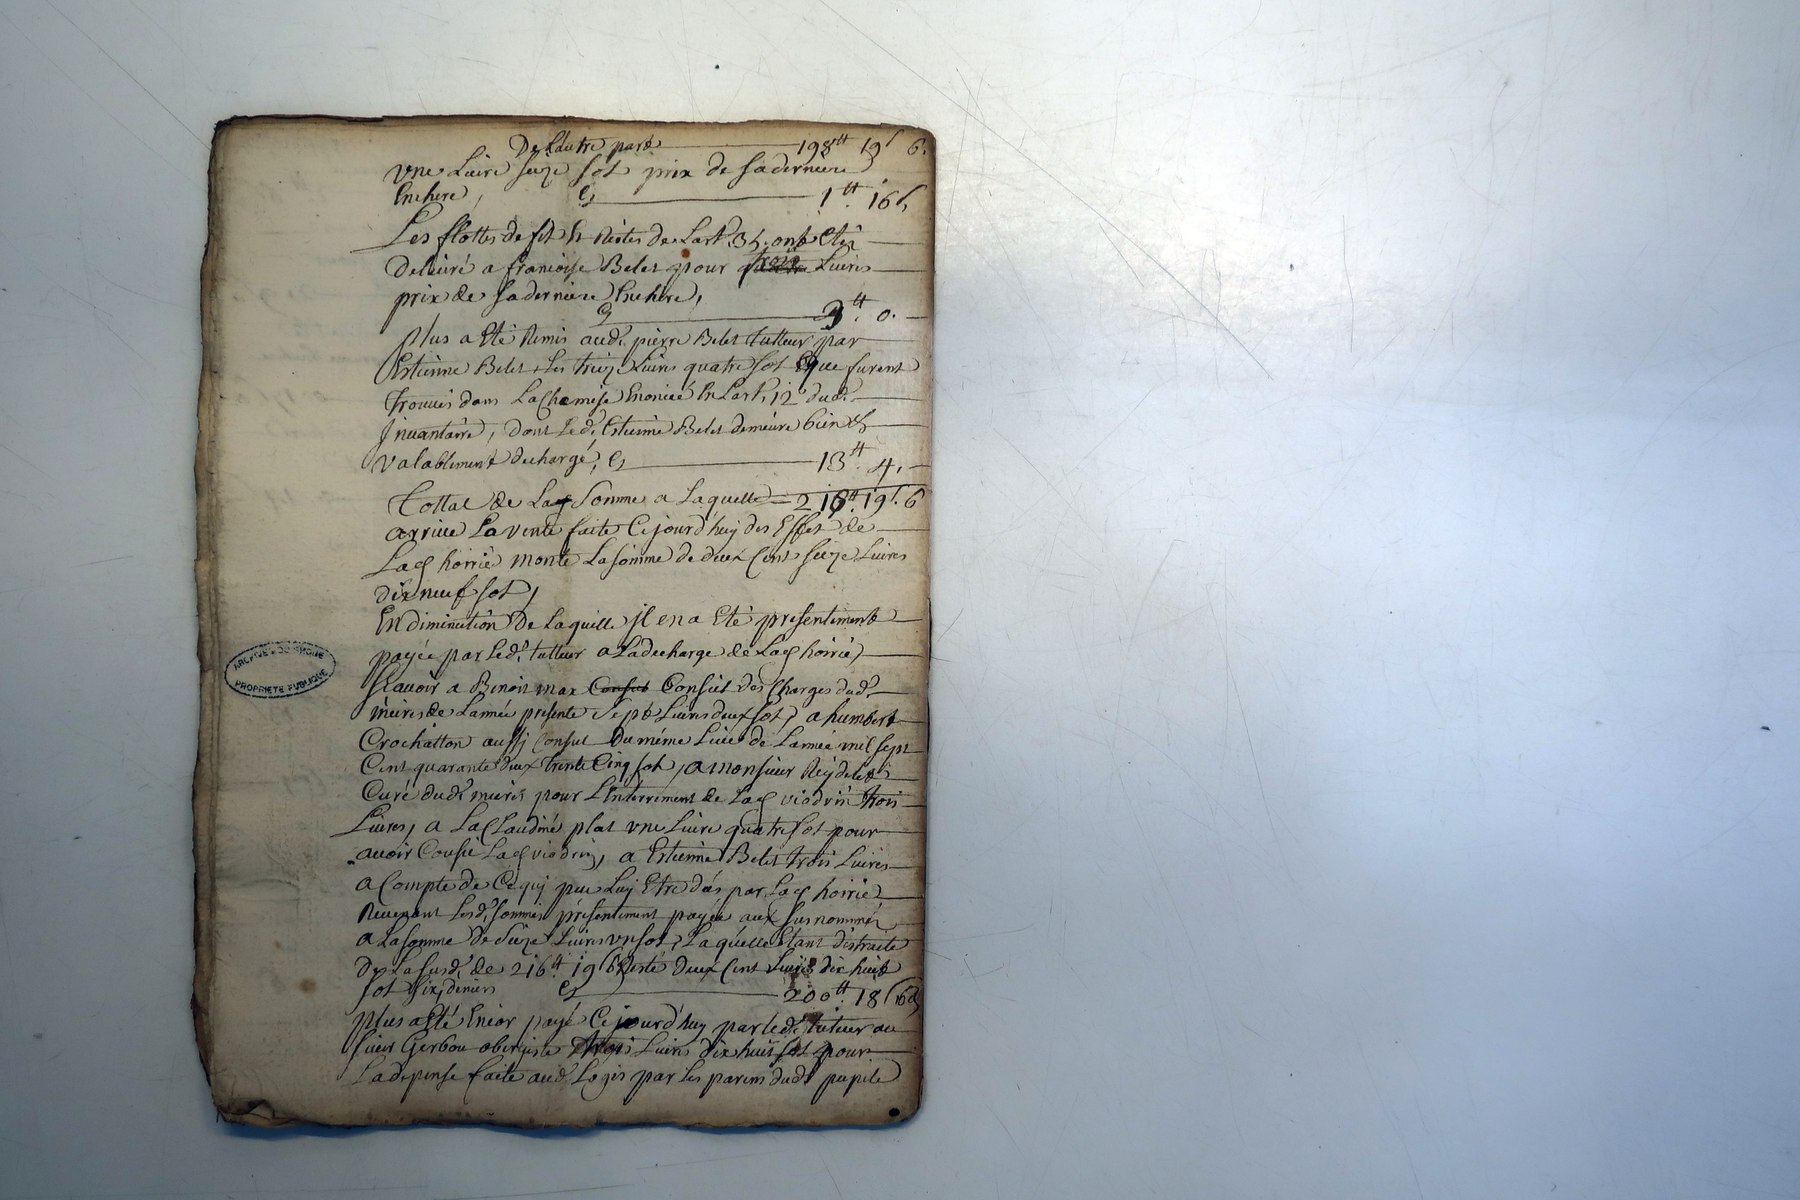 De Lautre part 198ᵗᵗ 19ˢ 6.
Vne Livre seize sol prix de sa derniere
Enchere, Cy 1ᵗᵗ. 16ˢ
Les flottes de fil de l'art. 34. ont étés
Delivré a francoise Belet pour trois Livres
prix de sa derniere Enchere,
Cy 3ᵗᵗ. 0.
plus a Eté Remis aud. pierre Belet tutteur par
Estienne Belet Les treize Livres quatre sol que furent
trouvés dans La Chemise Enoncée En Lart. 12 dud.
Jnvantaire, dont Led. Estienne Belet demeure bien et
valablement dechargé, Cy 13ᵗᵗ. 4.
Tottal de La Somme a Laquelle 216ᵗᵗ. 19ˢ. 6
arrive La vente faite Cejourd'huy des Effet de
Lad hoirié monte La somme de deux Cent seize Livres
dix neuf sol,
En diminution de Laquelle il en a Eté presentement
payée par Led. tutteur a La decharge de Lad hoirié,
scavoir a Benoit max Consul des Charges dud.
de Lannée presente Sept Livres deux sol, a humbert
Crochatton aussi Consul Du méme Lieu de Lannée mil sept
Cent quarante deux trente Cinq sol, a monsieur Reydelet
Curé dud. pour L'Enterrement de Lad viodrin trois
Livres, a La Claudine plat vne Livre quatre sol pour
avoir Cousu Lad viodrin, a Estienne Belet trois Livres
a Compte de Ce qui peu Luy Etre dus par Lad hoirié
Revenant Lesd. sommes présentement payée aux susnommés
a La somme de Seize Livres vn sol, Laquelle Etant distraite
De La susd. de 216ᵗᵗ. 19ˢ 6 Reste Deux Cent Livres dix huit
sol six deniers Cy 200ᵗᵗ. 18ˢ 6d
plus a Eté Encor payé Cejourd'huy par led. tuteur au
sieur Gerbou obergiste trois Livres dix huit sol pour
La depense faite aud. Logis par Les parens dud. pupile
ARCHIVES DU RHONE
PROPRIETE PUBLIQUE